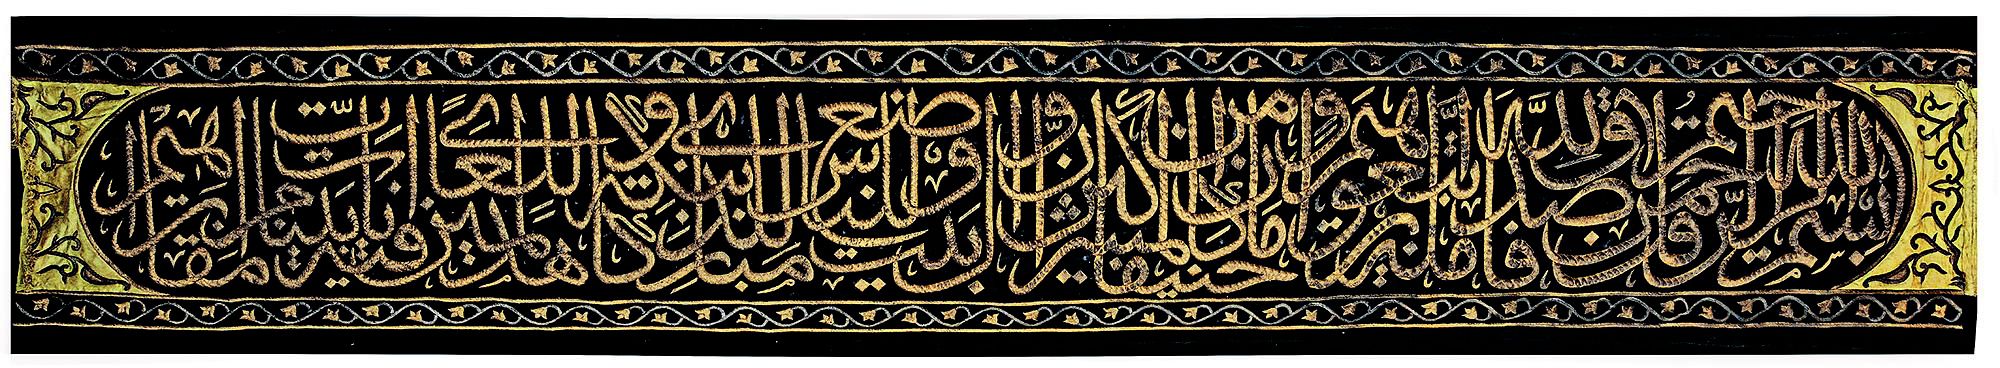 بسم الله الرحمن الرحيم قل صدق الله فاتبعوا ملة إبراهيم حنيفا وما كان من المشركين إن أول بيت وضع للناس للذي ببكة مباركا وهدى للعالمين فيه آيات بينات مقام إبراهيم